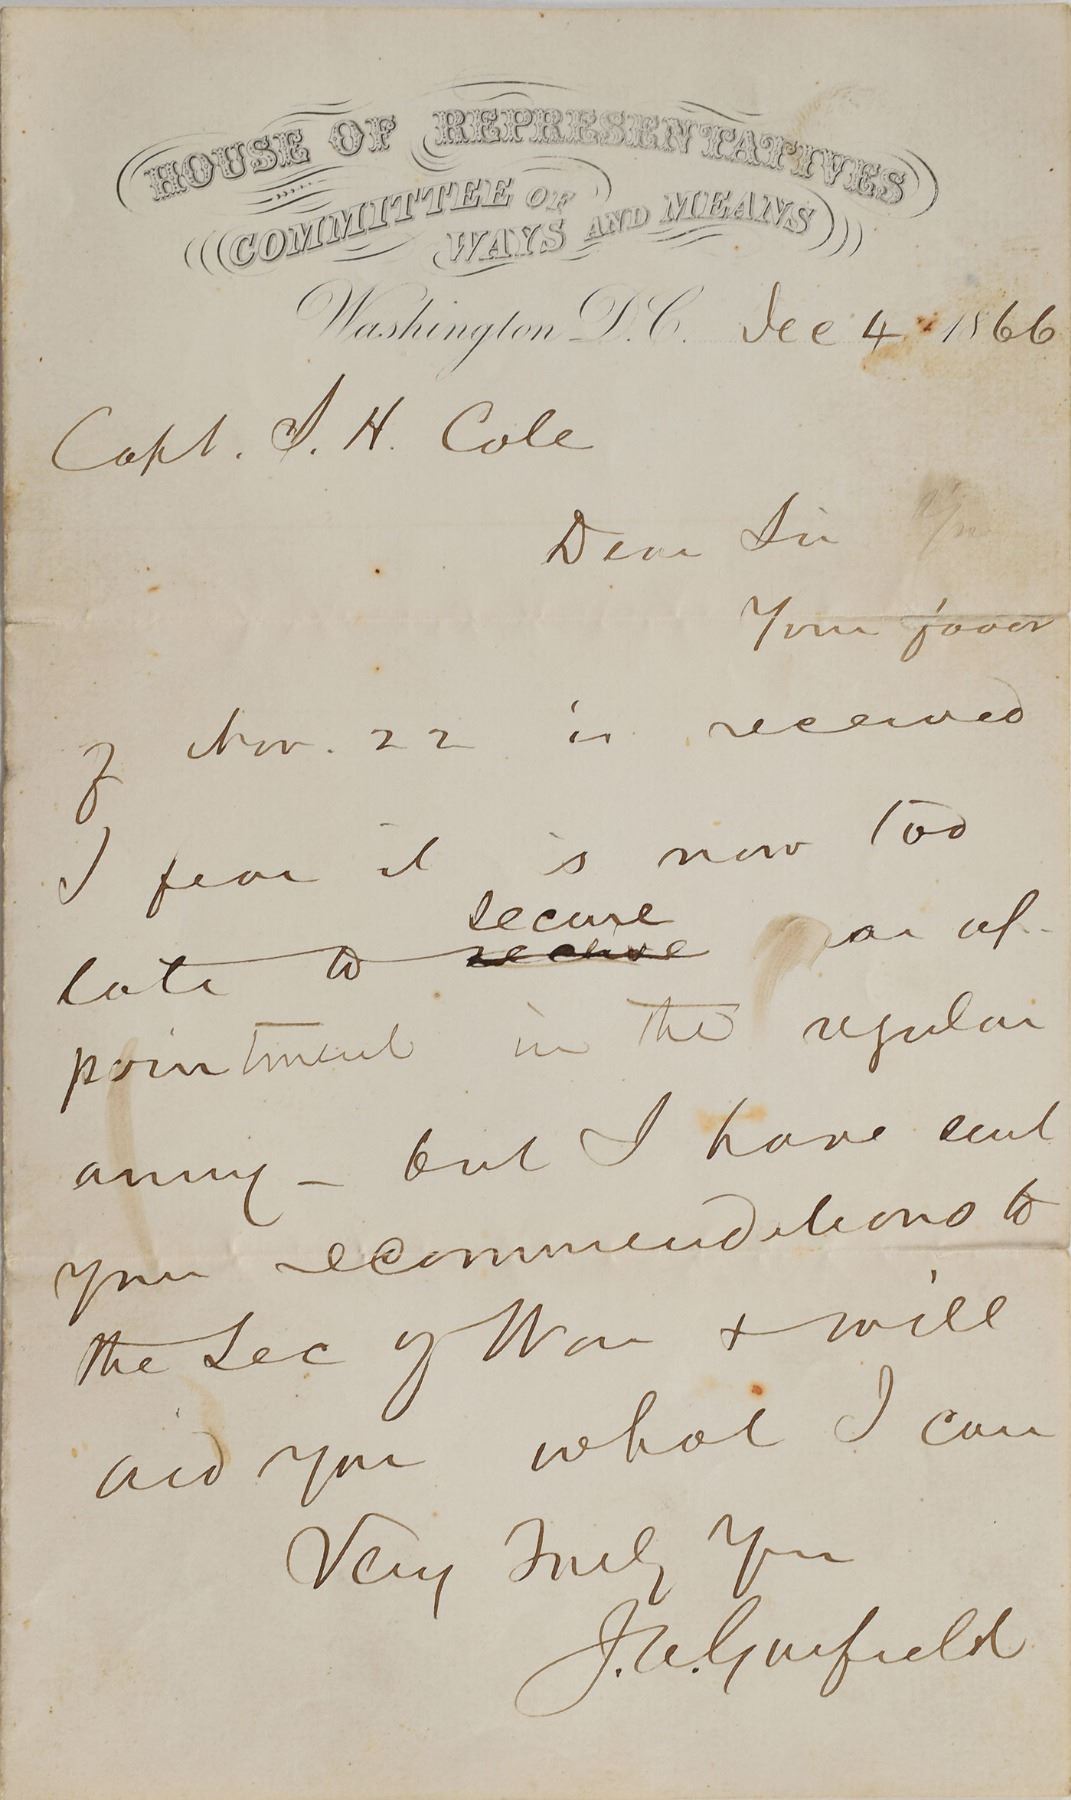 HOUSE OF REPRESENTATIVES
COMMITTEE OF WAYS AND MEANS
Washington D.C. Dec 4 1866
Capt. S. H. Cole
Dear Sir
Your favor
of Nov. 22 is received
I fear it is now too
secure
late to receive an ap-
pointment in the regular
army - but I have sent
your recommendations to
the Sec of War & will
aid you what I can
Very Truly Yours
J. A. Garfield